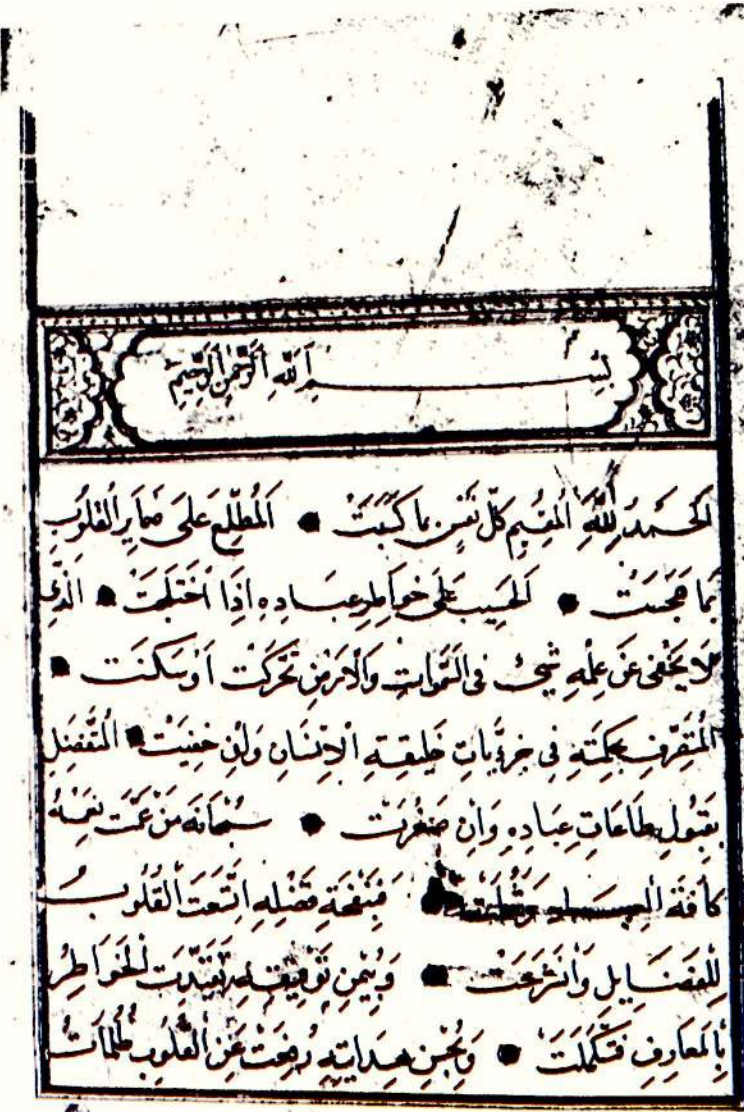 بِسْمِ اللّٰهِ الرَّحْمٰنِ الرَّحِيمِ
اَلْحَمْدُ لِلّٰهِ الْمُقِيمِ كُلَّ نَفْسٍ بِمَا كَسَبَتْ ● اَلْمُطَّلِعِ عَلَى ضَمَايِرِ الْقُلُوبِ
بِمَا هَجَسَتْ ● اَلْحَسِيبِ عَلَى خَوَاطِرِ عِبَادِهِ اِذَا اخْتَلَجَتْ ● الَّذِي
لَا يَخْفَى عَنْ عِلْمِهِ شَيْءٌ فِي السَّمٰوَاتِ وَالْاَرْضِ تَحَرَّكَتْ اَوْ سَكَنَتْ ●
الْمُتَصَرِّفِ بِحِكْمَتِهِ فِي جُزْئِيَّاتِ خَلِيقَتِهِ الْاِنْسَانِ وَاِنْ خَفِيَتْ ● الْمُتَفَضِّلِ
بِقَبُولِ طَاعَاتِ عِبَادِهِ وَاِنْ صَغُرَتْ ● سُبْحَانَهُ مَنْ عَمَّتْ نِعَمُهُ
كَافَّةَ الْعِبَادِ ● فَبِنَفْحَةِ فَضْلِهِ اتَّسَعَتِ الْقُلُوبُ
لِلْفَضَايِلِ وَانْشَرَحَتْ ● وَبِيُمْنِ تَوْفِيقِهِ تَقَيَّدَتِ الْخَوَاطِرُ
بِالْمَعَارِفِ فَتَكَمَّلَتْ ● وَبِحُسْنِ هِدَايَتِهِ رُفِعَتْ عَنِ الْقُلُوبِ ظُلُمَاتُ